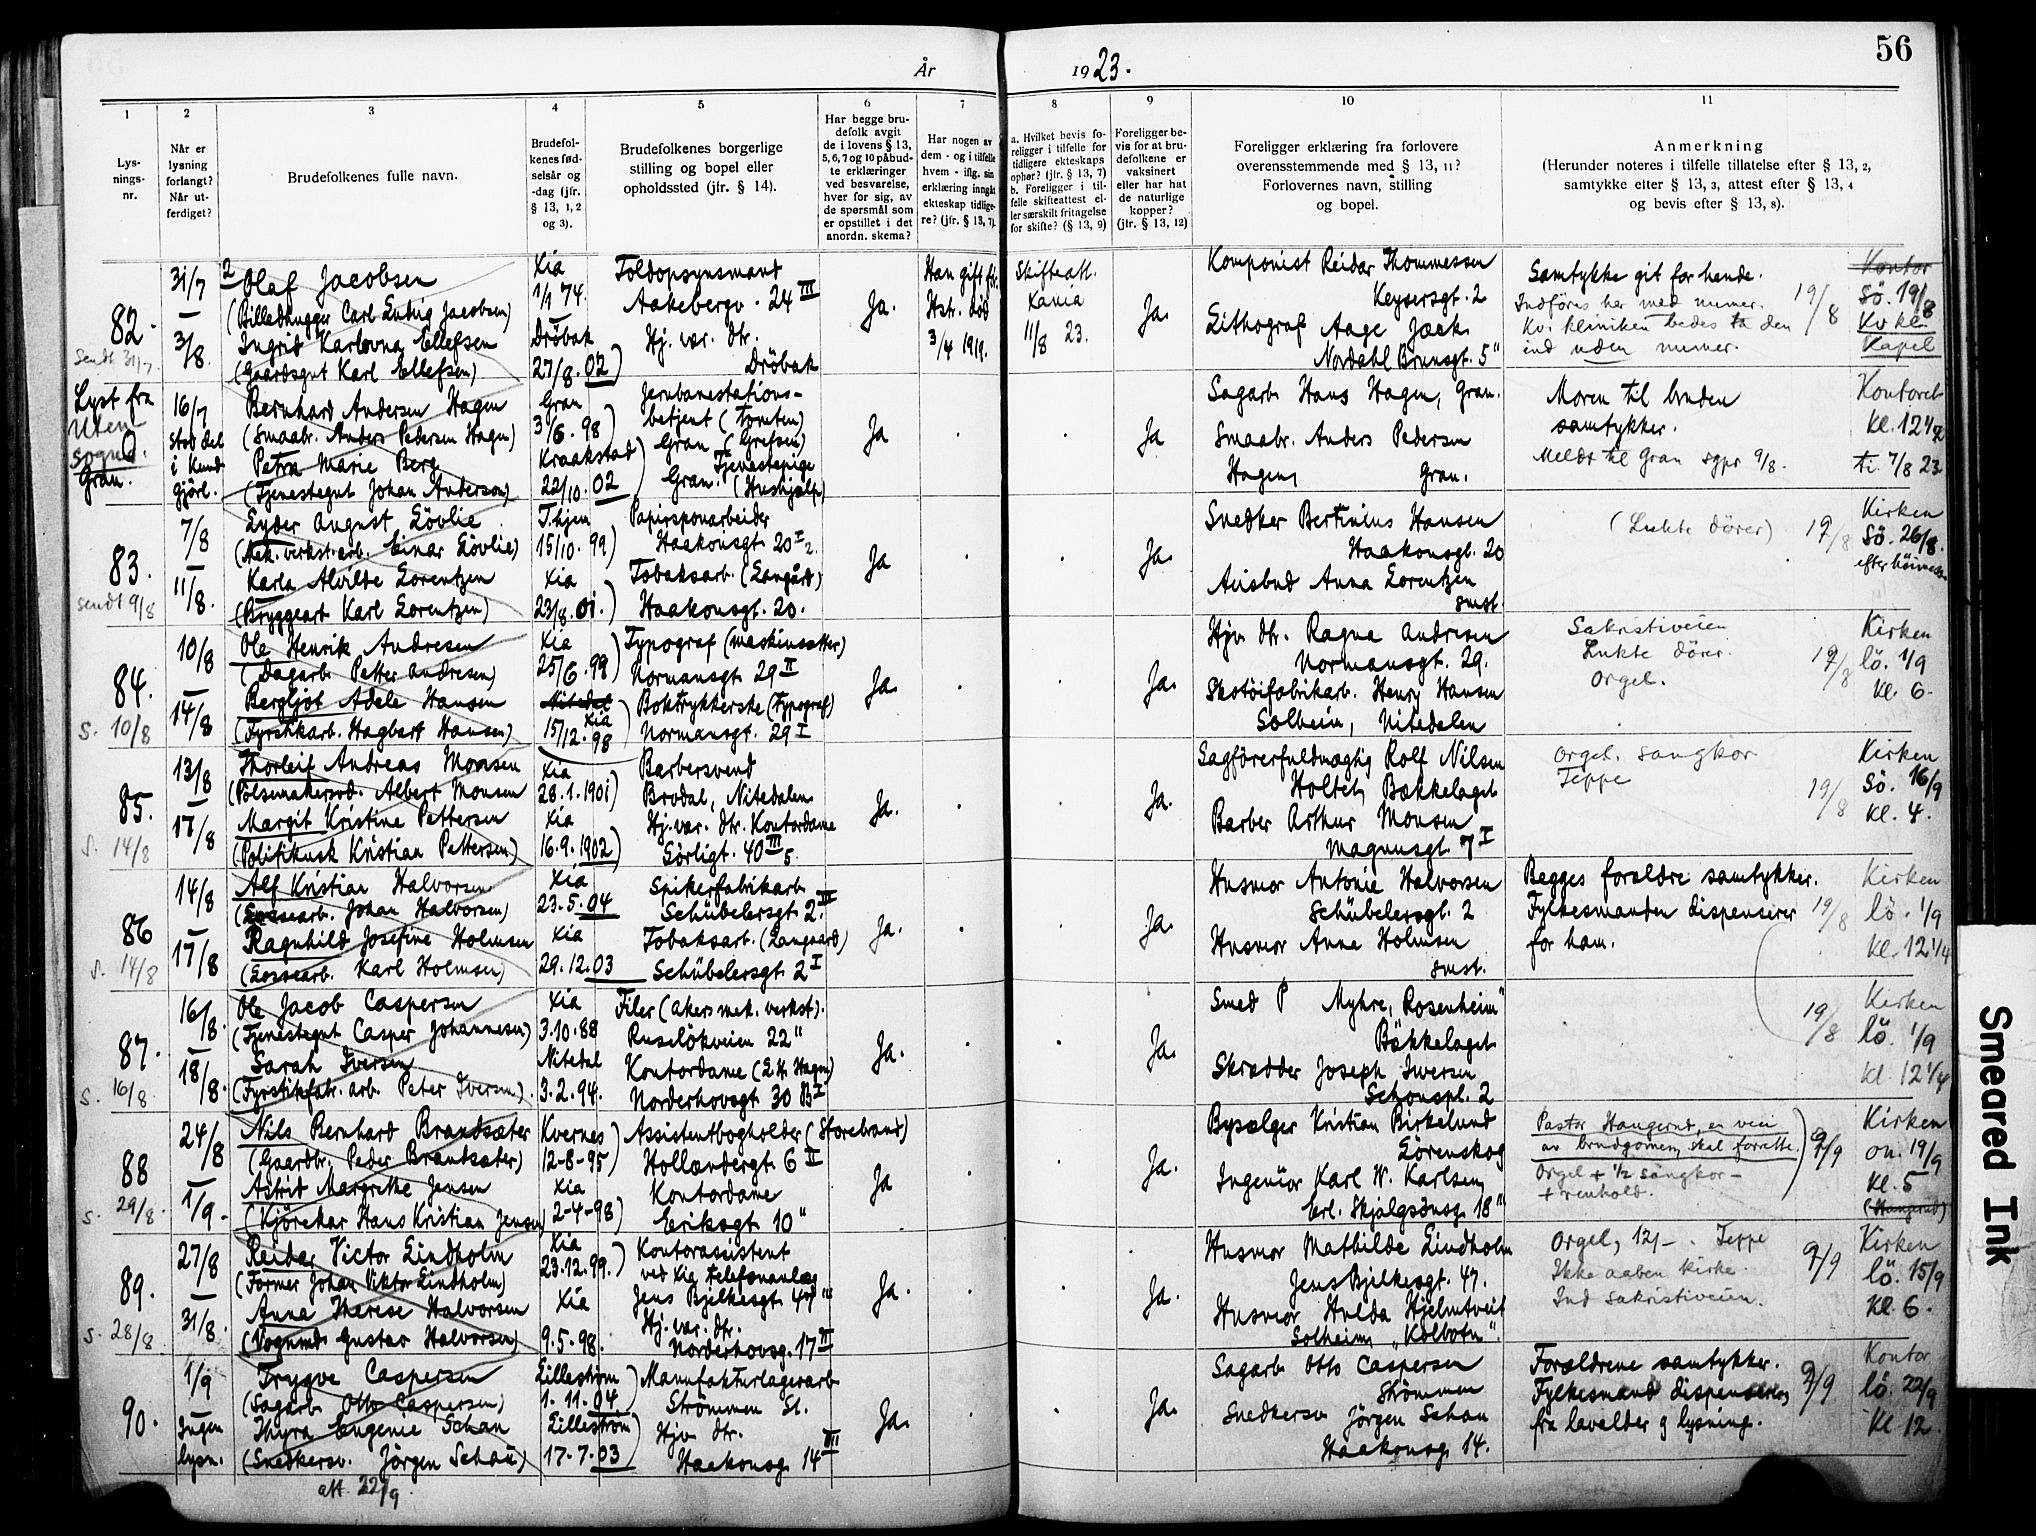 56
År 1923.
1 2 3 4 5 6 7 8 9 10 11
Lys-
nings-
nr.
Når er
lysning
forlangt?
Når ut-
ferdiget?
Brudefolkenes fulle navn.
Brudefol-
kenes fød-
selsår og
-dag (jfr.
§ 13, 1, 2
og 3).
Brudefolkenes borgerlige
stilling og bopel eller
opholdssted (jfr. § 14).
Har begge bru-
defolk avgit
de i lovens § 13,
5, 6, 7 og 10 påbud-
te erklæringer
ved besvarelse,
hver for sig, av
de spørsmål som
er opstillet i det
anordn. skema?
Har nogen av
dem - og i tilfelle
hvem - iflg. sin
erklæring inngått
ekteskap tidlige-
re? (jfr. § 13, 7).
a. Hvilket bevis fo-
religger i tilfelle for
tidligere ekteskaps
ophør? (jfr. § 13, 7)
b. Foreligger i til-
felle skifteattest el-
ler særskilt fritagelse
for skifte? (§ 13, 9)
Foreligger be-
vis for at bru-
defolkene er
vaksinert
eller har hat
de naturlige
kopper?
(jfr. § 13, 12)
Foreligger erklæring fra forlovere
overensstemmende med § 13, 11?
Forlovernes navn, stilling
og bopel.
Anmerkning
(Herunder noteres i tilfelle tillatelse efter § 13, 2,
samtykke etter § 13, 3, attest efter § 13, 4
og bevis efter § 13, 8).
82.
Sendt 31/7.
31/7
—
3/8.
2 Olaf Jacobsen
(Billedhugger Carl Ludvig Jacobsen)
Ingrid Karlovna Ellefsen
(Gaardsgut Karl Ellefsen)
Kia
1/1 74.
Dröbak
27/8. 02)
Toldopsynsmand
Aakebergv. 24 III
Hj. vær. dtr.
Dröbak
Ja.
Han gift før.
Hstr. död
3/4 1919.
Skifteatt.
Kania
11/8 23.
Ja.
Komponist Reidar Thommessen
Keysersgt. 2
Lithograf Aage Jack
Nordahl Brunsgt. 5"
Samtykke git for hende.
Indföres her med numer.
Kv. kliniken bedes ta den
ind uden numer.
19/8
Kontor
Sö. 19/8
Kv kl.
Kapel
Lyst fra
Uten-
sogns.
Gran.
16/7
stod del
i Kund-
gjörl.
Bernhard Andersen Hagen
(Smaabr. Anders Pedersen Hagen)
Petra Marie Berg
(Tjenestegut Johan Anderson)
Gran
3/6. 98)
Kraakstad
22/10. 02
Jernbanestations-
betjent (Tomten)
Gran (Grefsen)
Tjenestepige
Gran. (Hushjælp)
Ja
.
.
Ja
Sagarb. Hans Hagen, Gran.
Smaabr. Anders Pedersen
Hagen, Gran.
Moren til bruden
samtykker.
Meldt til Gran sgpr 9/8.
Kontoret
kl. 12 1/2
ti. 7/8 23.
83.
sendt 9/8
7/8
—
11/8.
Eyder August Lövlie
(Mek. verkst. arb. Einar Lövlie)
Karla Alvilde Lorentzen
(Bryggeart Karl Lorentzen)
T.hjem
15/10. 99)
Kia
23/8. 01.)
Papirsponarbeider
Haakonsgt. 20 I 2.
Tobaksarb. (Langård)
Haakonsgt. 20.
Ja
.
.
Ja.
Snedker Bertinius Hansen
Haakonsgt. 20
Avisbud Anna Lorentzen
smst.
(Lukte dörer)
19/8
Kirken
Sö. 26/8.
efter höimessen
84.
S. 10/8
10/8
—
14/8
Ole Henrik Andresen
(Dagarb. Petter Andresen)
Bergljot Adele Hansen
(Fyrstikarb. Hagbart Hansen)
Kia
25/6. 99)
Nitedal
Kia
15/12. 98
Typograf (maskinsætter)
Normansgt. 29 II
Boktrykkerske (Typograf)
Normansgt. 29 I
Ja.
.
.
Ja.
Hjv. dtr. Ragna Andresen
Normansgt. 29.
Skotöifabrikarb. Henry Hansen
Solheim, Nitedalen
Sakristiveien
Lukte dörer.
Orgel.
19/8
Kirken
lö. 1/9
kl. 6.
85.
S. 14/8
13/8
—
17/8
Thorleif Andreas Monsen
(Pölsemakersvd. Albert Monsen
Margit Kristine Pettersen
(Politikusk Kristian Pettersen)
Kia
28.1.1901)
Kia
16.9.1902)
Barbersvend
Brodal, Nitedalen
Hj. vær. dtr. Kontordame
Sörligt. 40 III 5.
Ja.
.
.
Ja.
Sagförerfuldmægtig Rolf Nilsen
Holtet, Bækkelaget
Barber Arthur Monsen
Magnusgt. 7 I
Orgel. sangkor
Teppe
19/8
Kirken
Sö. 16/9
kl. 4.
86
S. 14/8
14/8
—
17/8
Alf Kristian Halvorsen
(Lossearb. Johan Halvorsen)
Ragnhild Josefine Holmsen
(Lossearb. Karl Holmsen)
Kia
23.5.04
Kia
29.12.03
Spikerfabrikarb.
Schübelersgt. 2. IV
Tobaksarb. (Langaard)
Schübelersgt. 2 I
Ja.
.
.
Ja.
Husmor Antonie Halvorsen
Schübelersgt. 2
Husmor Anna Holmsen
smst.
Begges forældre samtykker.
Fylkesmanden dispenserer
for ham.
19/8
Kirken
lö. 1/9
kl. 12 1/4
87.
S. 16/8
16/8.
—
18/8.
Ole Jacob Caspersen
(Tjenestegut Casper Johannesen)
Sarah Iversen
(Fyrstikfabr. arb. Peter Iversen)
Kia
3.10.88
Nitedal
3.2.94.
Filer (Akers mek. verkst).
Ruselökveien 22"
Kontordame (2 H. Hagen)
Norderhovsgt 30 B I
Ja.
.
.
Ja.
Smed P Myhre, "Rosenheim"
Bækkelaget
Skrædder Joseph Iversen
Schouspl. 2
19/8
Kirken
lö. 1/9
kl. 12 1/4
88
S. 29/8.
24/8
—
1/9.
Nils Bernhard Brandsæter
(Gaardbr. Peder Brandsæter)
Astrid Margrethe Jensen
(Kjörekar Hans Kristian Jensen)
Kvernes
12-8-95)
Kia
2-4-98)
Assistentbogholder (Storebrand)
Hollændergt. 6 II
Kontordame
Eriksgt. 10"
Ja
.
.
Ja.
Bysælger Kristian Birkelund
Lörenskog
Ingeniör Karl W. Karlsen,
Erl. Skjalgsönsg. 18"
Pastor Haugerud, en ven
av brudgomen, skal forrette.
Orgel + 1/2 sangkor —
+ renhold.
9/9
Kirken
on. 19/9
kl. 5
(Haugerud)
89.
S. 28/8
27/8
—
31/8.
Reidar Victor Lindholm
(Former Johan Viktor Lindholm)
Anna Therese Halvorsen
(Vognmd. Gustav Halvorsen)
Kia
23.12.99.)
Kia
9.5.98.
Kontorassistent
ved Kia telefonanlæg
Jens Bjelkesgt 47"
Hj. vær. dtr.
Norderhovsg. 17 III
Ja.
.
.
Ja.
Husmor Mathilde Lindholm
Jens Bjelkesgt. 47.
Husmor Hulda Hjelmtveit
Solheim, "Kolbotn".
Orgel, 12/- . Teppe
Ikke aaben kirke.
Ind sakristiveien.
9/9
Kirken
lö. 15/9
kl. 6.
90.
1/9
Ingen
lysn.
Trygve Caspersen
(Sagarb. Otto Caspersen)
Thyra Eugenie Schau
(Snedkersv. Jörgen Schau)
Lilleström
1. 11. 04)
Lilleström
17-7.03)
Manufakturlagerarb.
Strömmen St.
Hjv. dtr.
Haakonsg. 14 III
Ja.
.
.
Ja.
Sagarb. Otto Caspersen
Strömmen
Snedkersv. Jörgen Schau
Haakonsg. 14.
Forældrene samtykker.
Fylkesmand dispenserer,
fra lavalder og lysning.
9/9
Kontor
lö. 22/9
kl 12.
att. 22/9
Smeared Ink